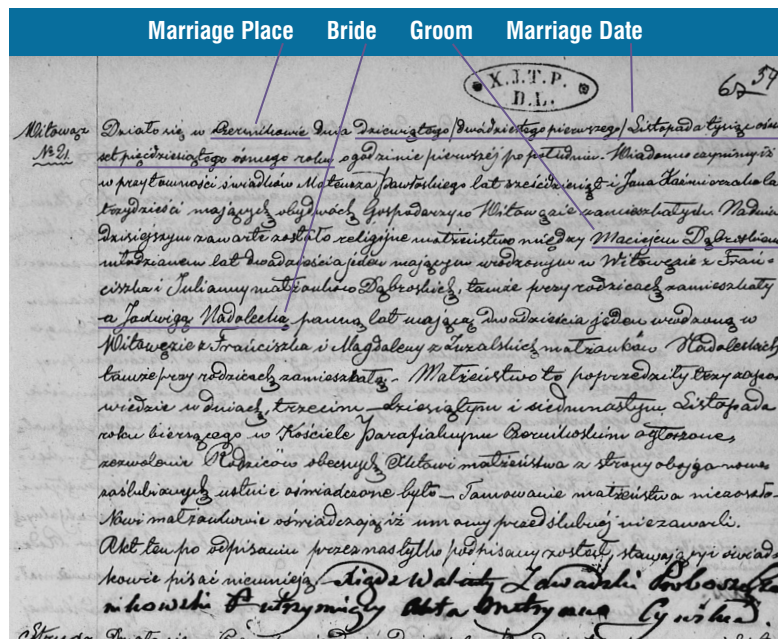 Marriage Place Bride Groom Marriage Date
X.I.T.P.
D.L.
62 59
Witowąż Działo się w Czernikowie dnia dziewiątego /dwudziestego pierwszego/ Listopada tysiąc ośm
№ 21 set pięćdziesiątego ósmego roku o godzinie pierwszej po południu. Wiadomo czynimy iż
w przytomności świadków Mateusza Pawłoskiego lat sześćdziesiąt i Jana Kaźmierzaka lat
trzydzieści mających obydwóch Gospodarzy w Witowężie zamieszkałych. Na dniu
dzisiejszym zawarte zostało religijne małżeństwo między Maciejem Dąbroskiem
młodzianem lat dwadzieścia jeden mającym urodzonym w Witowężie z Fran-
ciszka i Julianny małżonków Dąbroskich, tamże przy rodzicach zamieszkały
a Jadwigą Nadolecką panną lat mającą dwadzieścia jeden urodzoną w
Witowężie z Franciszka i Magdaleny z małżonków Nadoleckich
tamże przy rodzicach zamieszkałą. Małżeństwo to poprzedziły trzy zapo-
wiedzie w dniach, trzecim dziesiątym i siedmnastym Listopada
roku bieżącego w Kościele Parafialnym Czernikoskim ogłoszone,
zezwolenie Rodziców obecnych Aktowi małżeństwa z strony obojga nowo
zaślubionych ustnie oświadczone było. Tamowanie małżeństwa nie zaszło.
Nowi małżonkowie oświadczają iż umowy przedślubnej nie zawarli.
Akt ten po odpisaniu przez nas tylko podpisany został, stawający i świad-
kowie pisać nieumieją Xiądz Walenty Zawadzki Proboszcz Cze
nikowski utrzymujący Akta Cywilnego